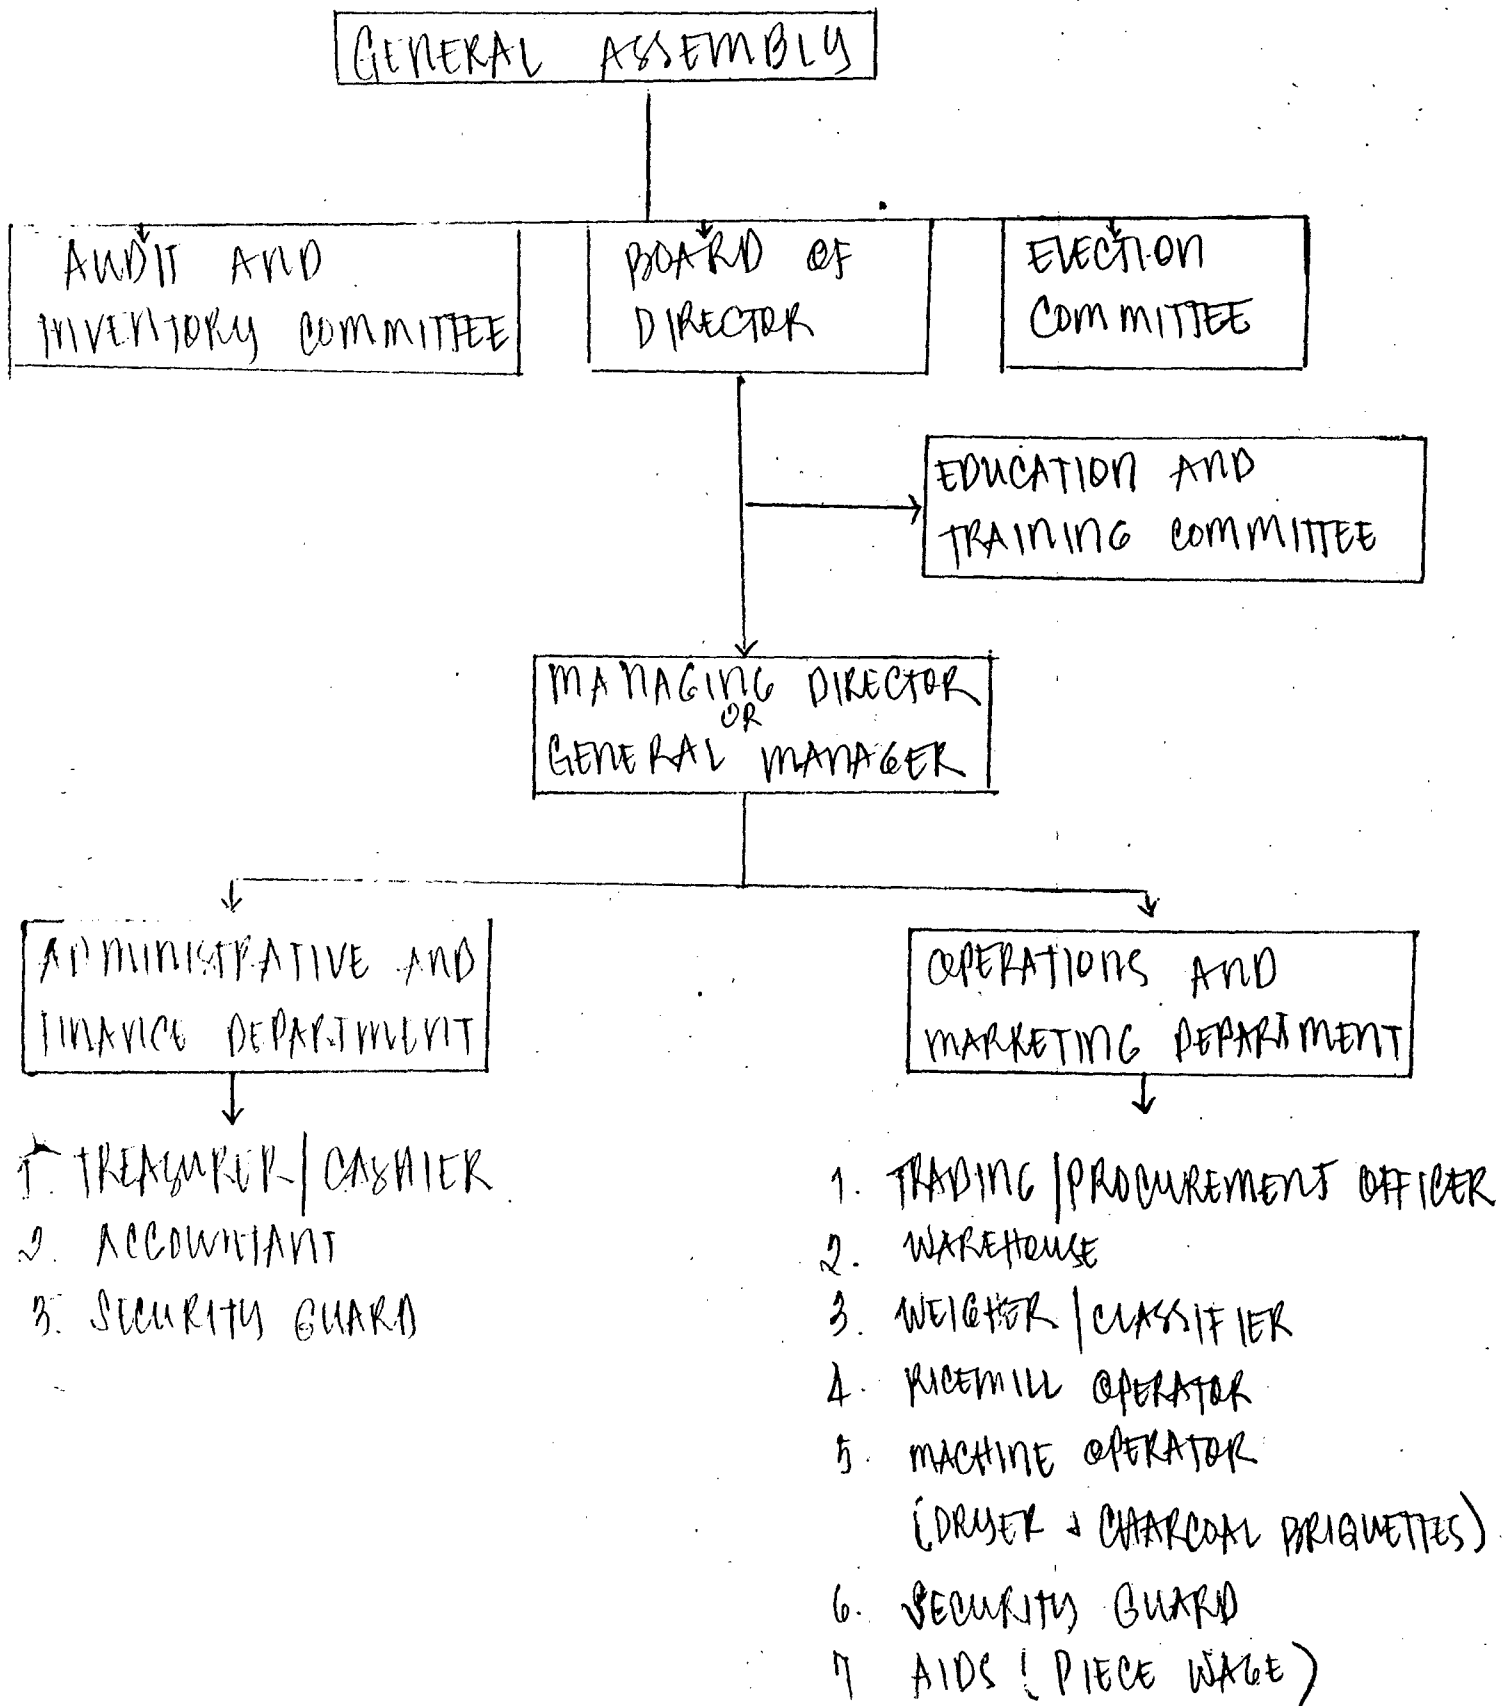 GENERAL ASSEMBLY
AUDIT AND
INVENTORY COMMITTEE
BOARD OF
DIRECTOR
ELECTION
COMMITTEE
EDUCATION AND
TRAINING COMMITTEE
MANAGING DIRECTOR
OR
GENERAL MANAGER
ADMINISTRATIVE AND
FINANCE DEPARTMENT
OPERATIONS AND
MARKETING DEPARTMENT
1. TREASURER/CASHIER
2. ACCOUNTANT
3. SECURITY GUARD
1. TRADING/PROCUREMENT OFFICER
2. WAREHOUSE
3. WEIGHER/CLASSIFIER
4. RICEMILL OPERATOR
5. MACHINE OPERATOR
(DRYER & CHARCOAL BRIQUETTES)
6. SECURITY GUARD
7 AIDS (PIECE WAGE)